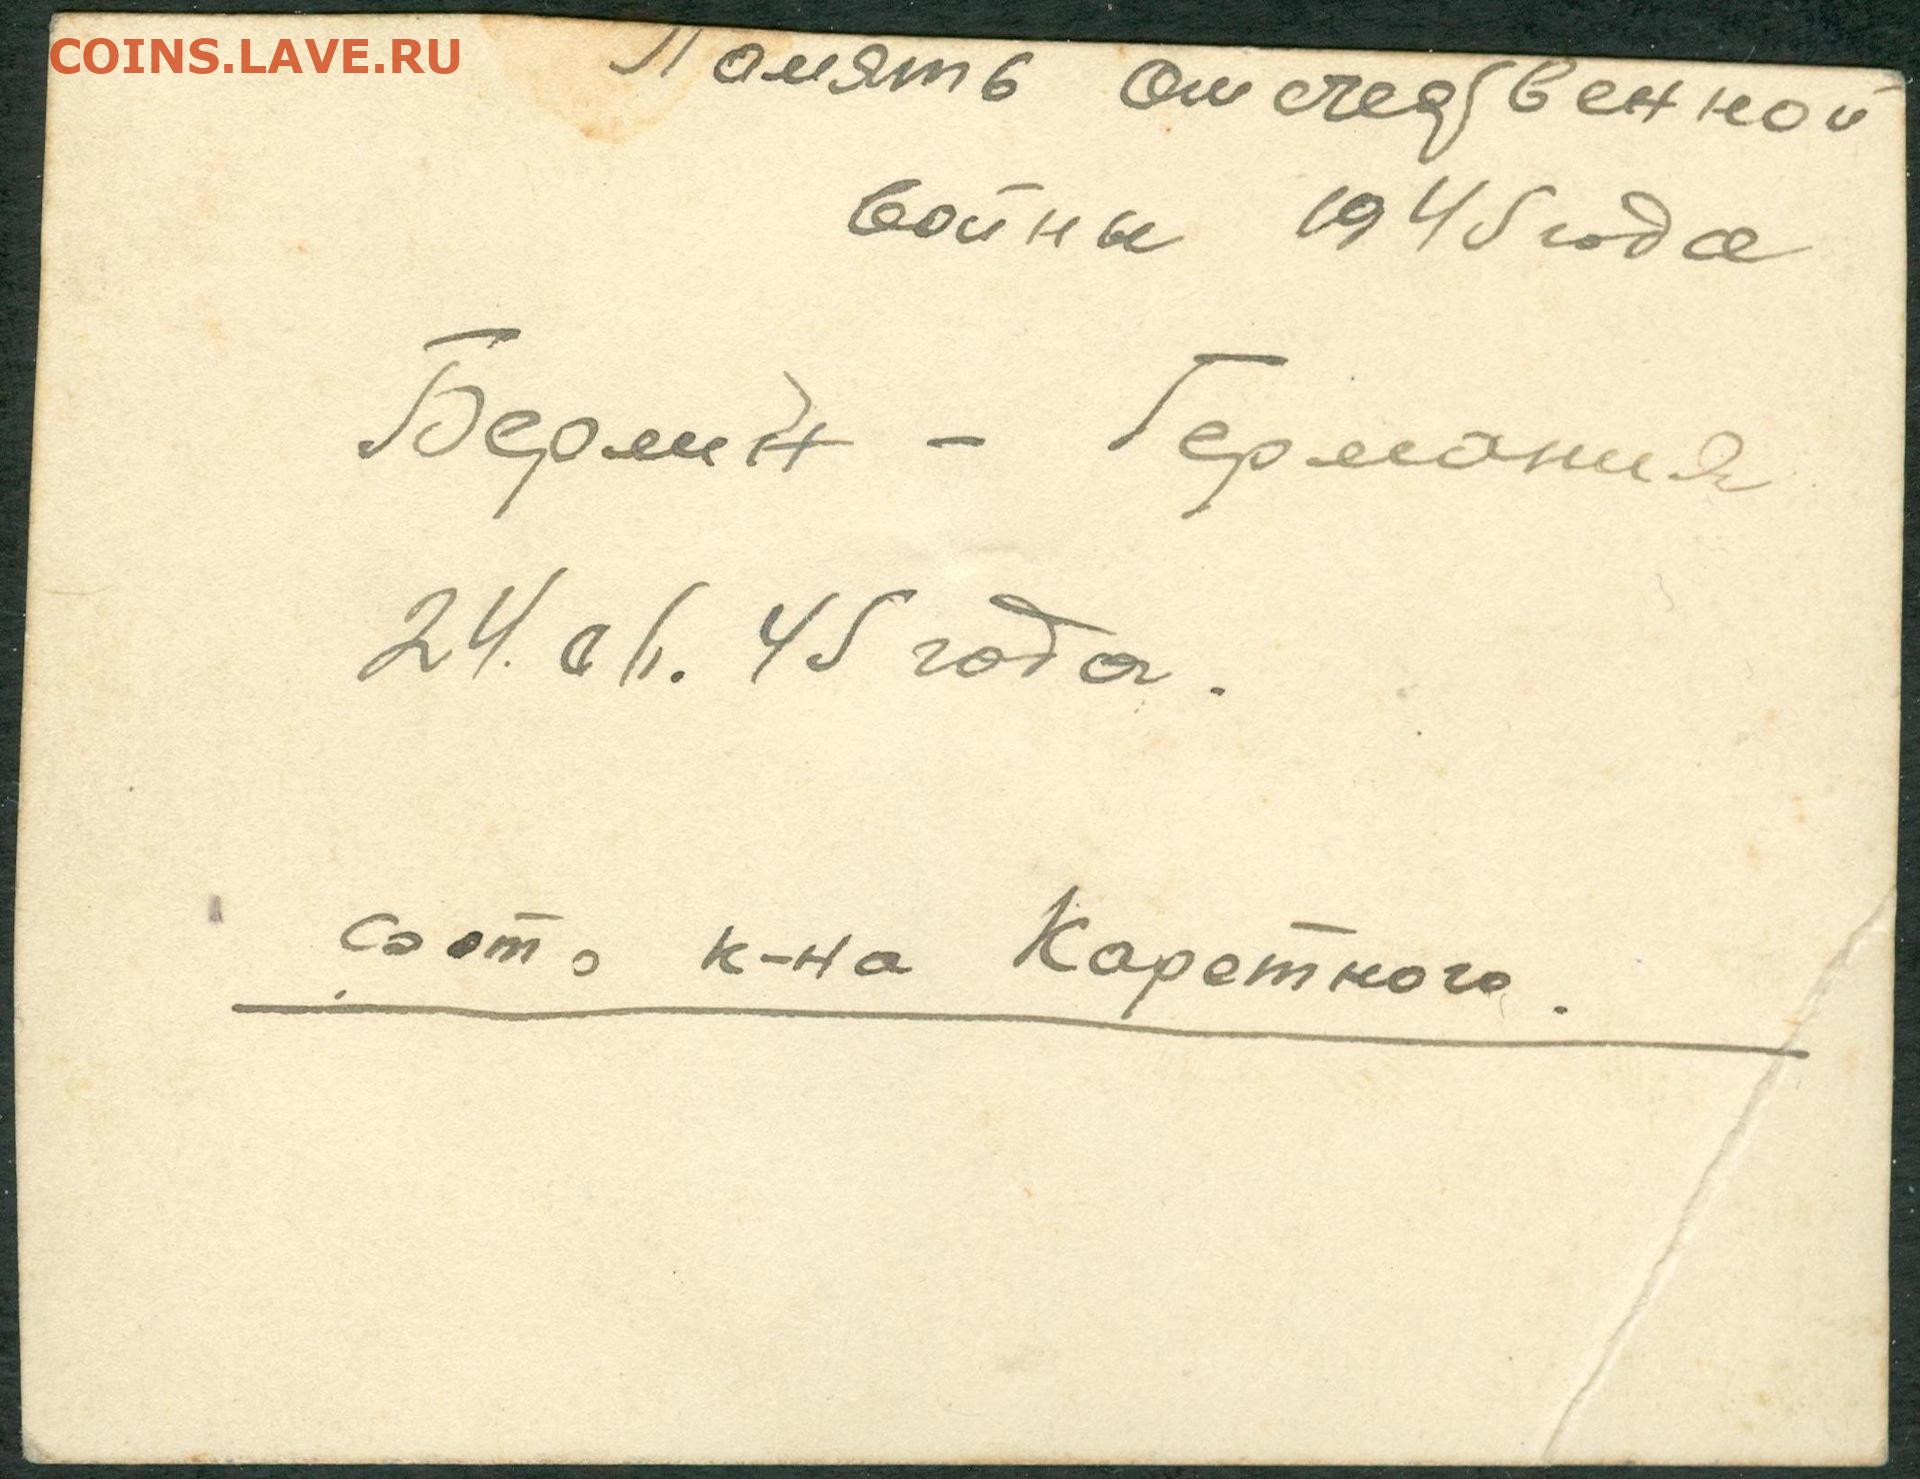 COINS.LAVE.RU
Память отечедвенной
войны 1945 года
Берлин - Германия
24. 45 года.
фото к-на Каретного.